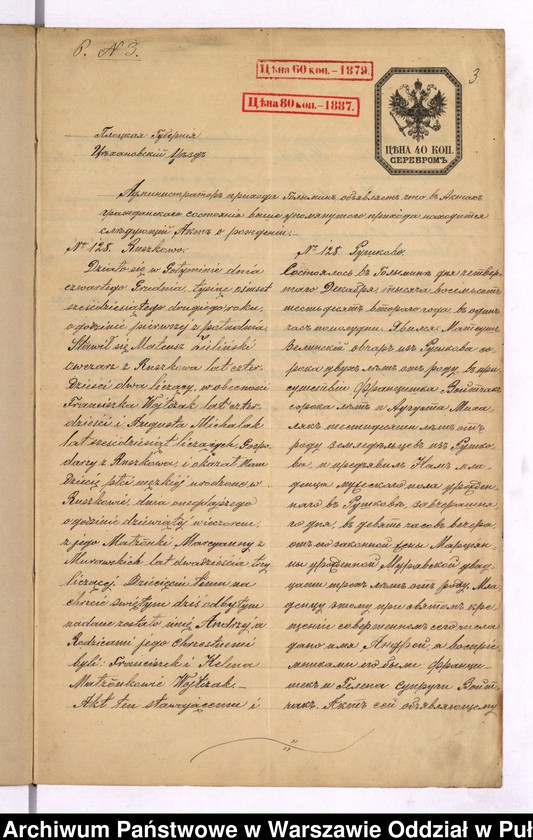 6. № 3.
Цѣна 60 коп.-1879.
Цѣна 80 коп.-1887.
3
ЦѢНА 40 КОП.
СЕРЕБРОМЪ
Плоцкая Губернія
Цѣхановскій Уѣздъ
Администраторъ прихода Голыминъ объявляетъ что въ Актахъ
гражданскаго состоянія выше упомянутого прихода находится
слѣдующій Актъ о рожденіи:
№ 128. Ruszkowo.
Działo się w Gołyminie dnia
czwartego Grudnia, tysiąc ośmset
sześćdziesiątego drugiego roku,
o godzinie pierwszej z południa.
Stawił się Mateusz Zieliński
owczarz z Ruszkowa lat czter-
dzieści dwa liczący, w obecności
Franciszka Wojtczak lat czter-
dzieści i Augusta Michalak
lat sześćdziesiąt liczących, Gospo-
darzy z Ruszkowa, i okazał Nam
Dziecię płci męzkiej urodzone w
Ruszkowie, dnia onegdajszego
o godzinie dziewiątej wieczorem,
z jego Małżonki Marcyanny z
Murawskich lat dwadzieścia trzy
liczącej. Dziecięciu temu na
chrcie świętym dziś odbytym
nadane zostało imię Andrzej a
Rodzicami jego chrestnemi
byli: Franciszek i Helena
Małżonkowie Wojtczak.
Akt ten stawającemu i
№ 128. Рушково.
Состоялось въ Голыминѣ дня четвер-
таго Декабря, тысяча восемьсотъ
шестьдесятъ втораго года, въ одинъ
часъ пополудни. Явился Матеушъ
Зелинскій овчаръ изъ Рушкова со-
рока двухъ лѣтъ отъ роду, въ при-
сутствіи Францишка Войтчакъ
сорока лѣтъ и Августа Миха-
лякъ шестидесяти лѣтъ отъ
роду земледѣльцевъ изъ Рушко-
ва, и предъявилъ Намъ мла-
денца мужескаго пола урожден-
наго въ Рушковѣ,
дня, въ девять часовъ вечера,
отъ его законной жены Марціян-
ны урожденной Муравской двад-
цати трехъ лѣтъ отъ роду. Мла-
денцу этому при святомъ кре-
щеніи совершенномъ сего числа
дано имя Андрей, а воспріе-
мниками его были Франци-
шекъ и Гелена супруги Войт-
чакъ. Актъ сей объявляющему
Archiwum Państwowe w Warszawie Oddział w Puł